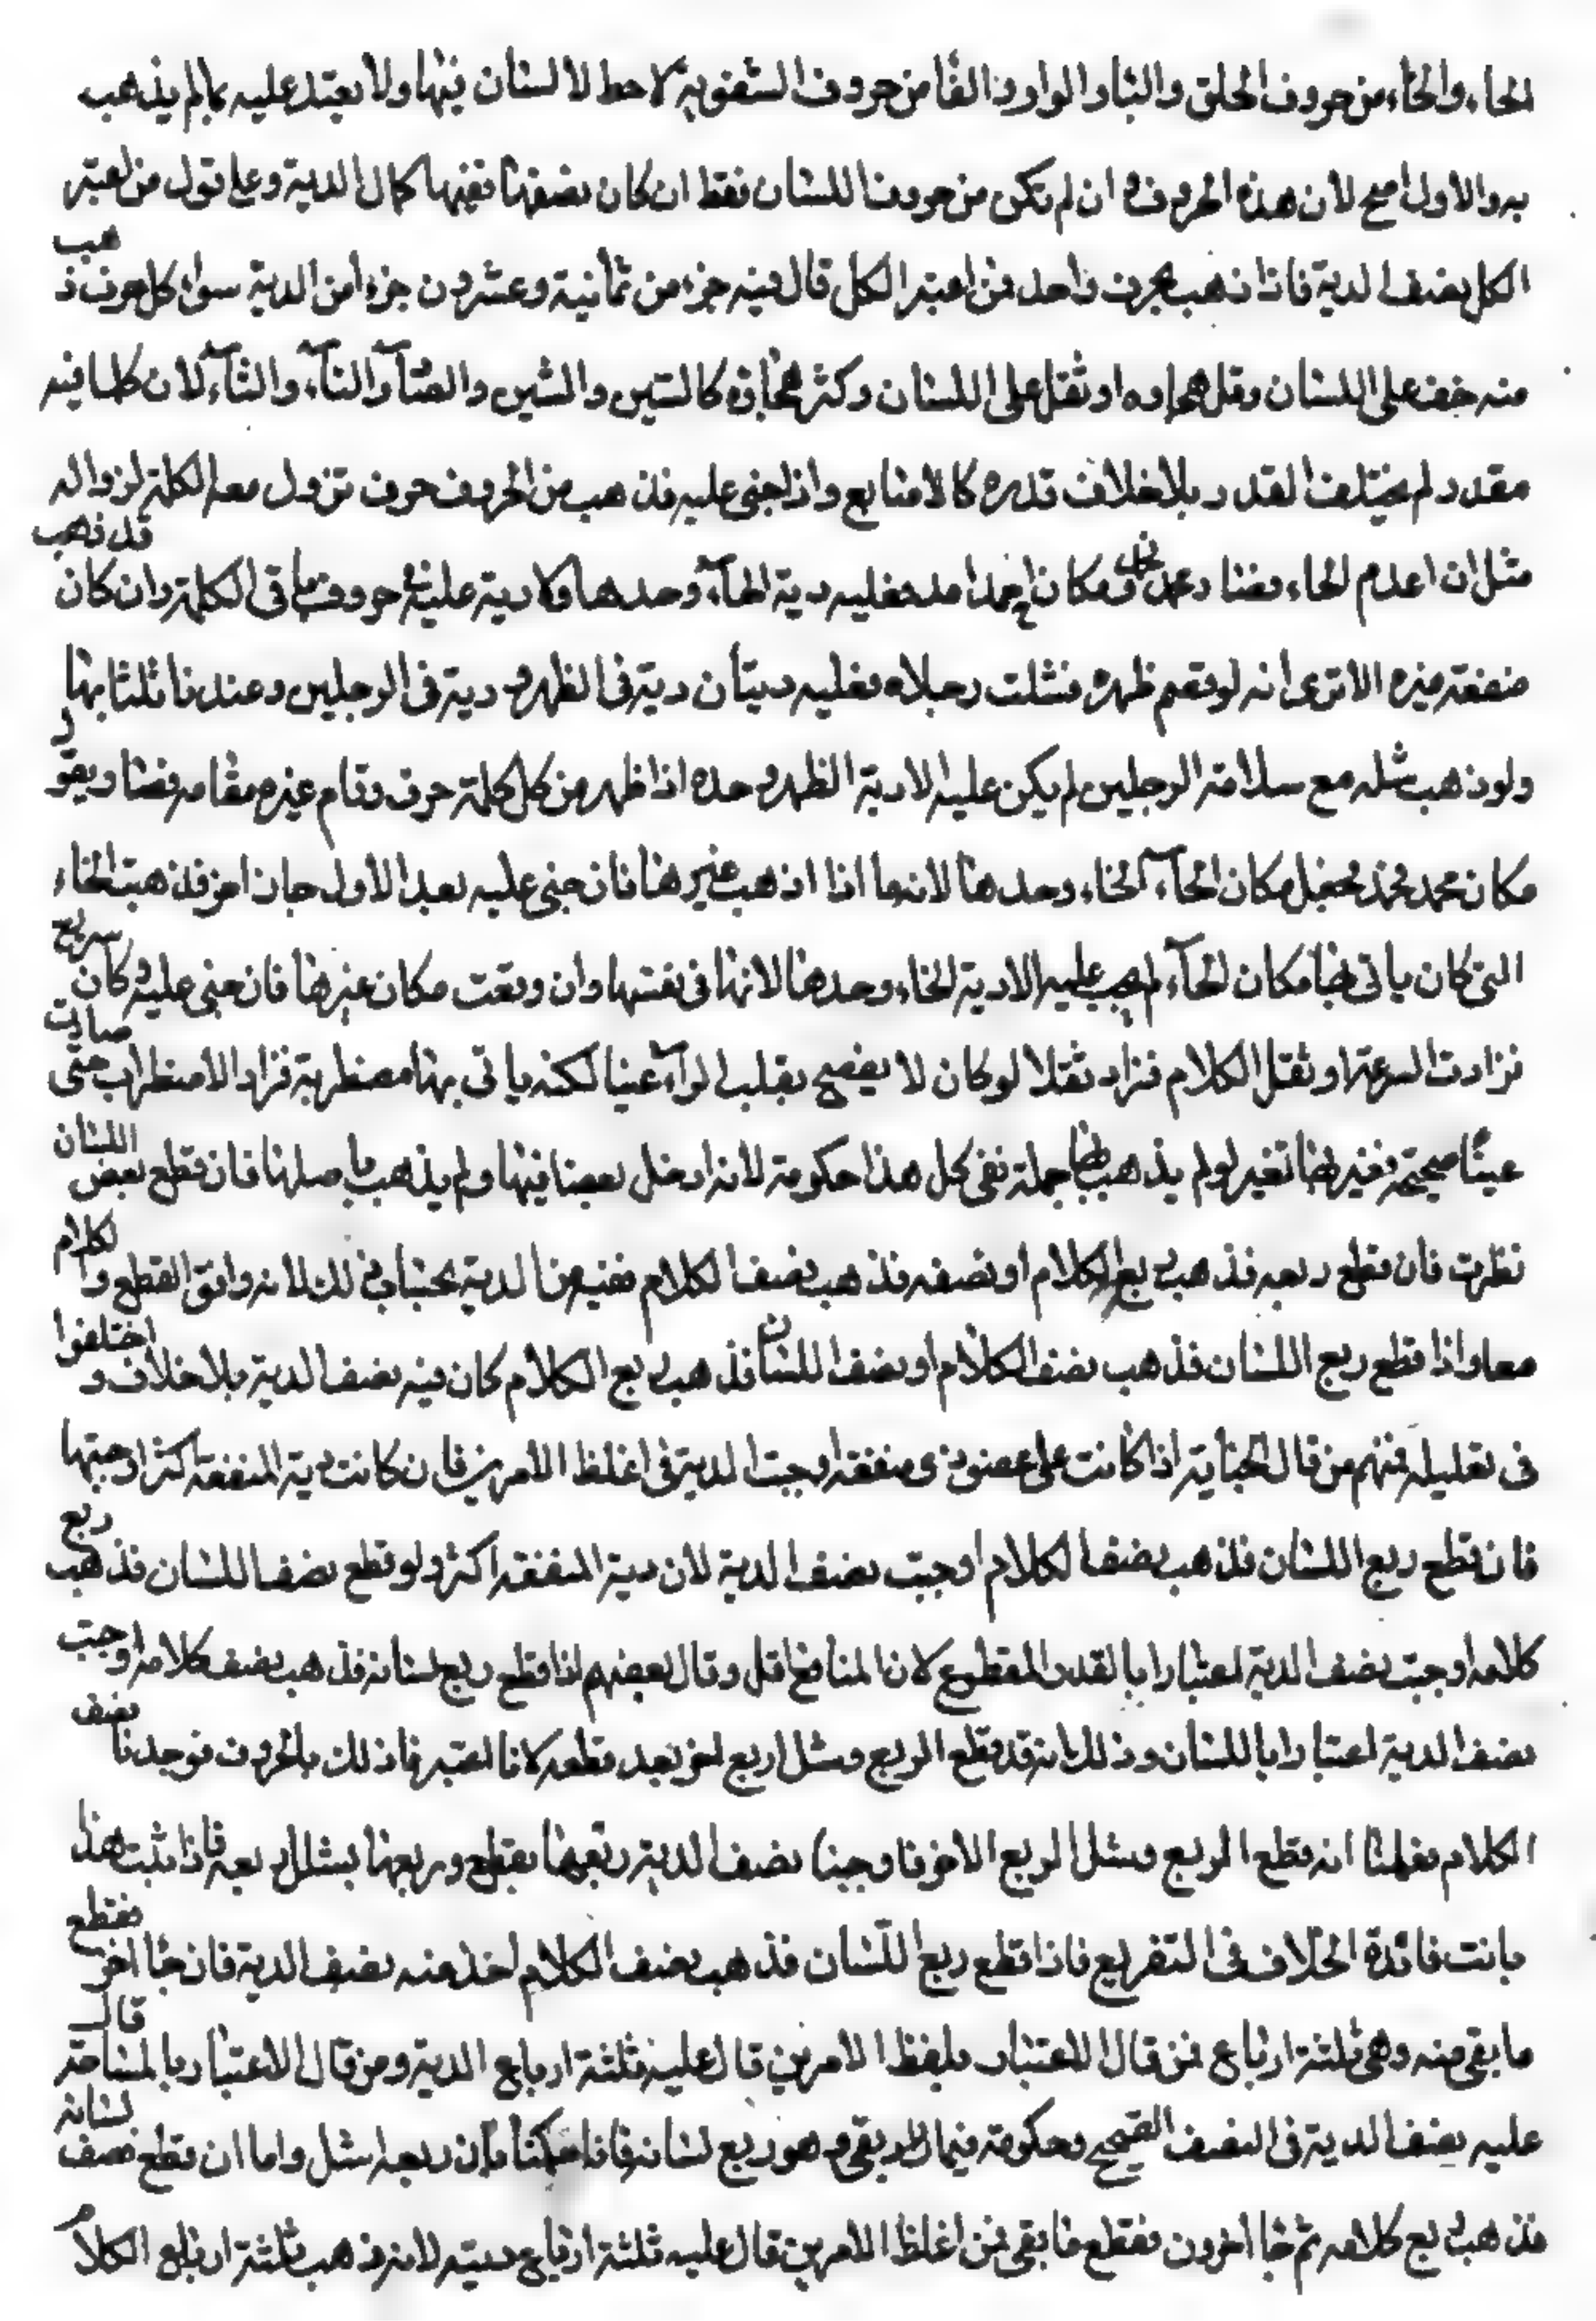 الحاء والخاء من حروف الحلق والباء والواو والفا من حروف الشفوية لا حظ لالسان فيها ولا يعتد عليه بما لم يذهب
به والاول اصح لان هذه الحروف وان لم تكن من حروف اللسان فقط ان كان نصفها ففيها كمال الدية وعلى قول من اعتبر
الكل نصف الدية فاذا ذهب بحرف واحد فمن اعتبر الكل قال فيه جزء من ثمانية وعشرون جزءا من الدية سواء كل حرف ذهب
منه خف على اللسان وقل هجاوه او ثقل على اللسان وكثر هجاؤه كالسين والشين والصاد والتاء والثاء لان كلما فيه
مقدر لم يختلف القدر بلاخلاف قدره كالاصابع واذا جنى عليه فذهب من الحروف حرف تزول معه الكلمة لزواله
مثل ان اعدم الحاء فصار محمد ممد ومكان احمد امد فعليه دية الحاء وحدها ولا دية عليه في حروف باقى الكلمة وان كان قد ذهب
منفعة ميزه الا ترى انه لو قصم ظهره فشلت رجلاه فعليه ديتان دية فى الظهر ودية فى الرجلين وعندنا ثلثا بهما
ولو ذهب شله مع سلامة الرجلين لم يكن عليه الا دية الظهر وحده اذا ظهر من كل كلمة حرف وقام غيره مقامه فصار يقول
مكان محمد مخمد يجعل مكان الحاء الخاء وحدها لانه ما اذا اذهب غيرها فان جنى عليه بعد الاول جان اخر فذهبت الخاء
التى كان ياتى بها مكان الحاء لم يجب عليه الا دية الخاء وحدها لانها فى نفسها وان وقعت مكان غيرها فان جنى عليه وكان سريع
فزادت السرعة او ثقل الكلام فزاد ثقلا لو كان لا يفصح بقلب الراء غينا لكنه ياتى بها مضطربة فزاد الاضطراب حتى صارت
عينا صحيحة بغيرها تغير لو لم يذهب بها جملة ففى كل هذا حكومة لانه ادخل بعضا فيها ولم يذهب باصلها فان قطع بعض اللسان
نظرت فان قطع ربعه فذهب ربع الكلام او نصفه فذهب نصف الكلام ففيه من الدية بحساب ذلك لانه وافق القطع والكلام
معا واذا قطع ربع اللسان فذهب نصف الكلام او نصف اللسان فذهب ربع الكلام كان فيه نصف الدية بلاخلاف واختلفوا
فى تعليله فمنهم من قال الجناية اذا كانت على عضو ذى منفعة اوجبت الدية فى اغلظ الامرين فان كانت دية المنفعة اكثر اوجبتها
فان قطع ربع اللسان فذهب نصف الكلام اوجبت نصف الدية لان دية المنفعة اكثر ولو قطع نصف اللسان فذهب ربع
كلامه اوجبت نصف الدية اعتبارا بالقدر المقطوع لان المنافع اقل وقال بعضهم اذا قطع ربع لسانه فذهب نصف كلامه اوجبت
نصف الدية اعتبارا باللسان وذلك انه قد قطع الربع وشل اربع اخر بعد قطعه لانا اعتبرنا ذلك بالحروف فوجدنا نصف
الكلام فعلمنا انه قطع الربع وشل الربع الاخر فاوجبنا نصف الدية ربعها بقطع وربعها بشلل ربعه فاذا ثبت هذا
بانت فائدة الخلاف فى التفريع فاذا قطع ربع اللسان فذهب نصف الكلام اخذ منه نصف الدية فان جا اخر فقطع
ما بقى منه وهى ثلثة ارباع فمن قال الاعتبار بلفظ الامرين قال عليه ثلثة ارباع الدية ومن قال الاعتبار بالمساحة قال
عليه نصف الدية فى النصف الصحيح وحكومة فيما بقى وهو ربع لسانه فانا حكمنا بان ربعه اشل واما ان قطع نصف لسانه
فذهب ربع كلامه ثم جا اخرون فقطع ما بقى فمن اغلظ الامرين قال عليه ثلثة ارباع ديته لانه ذهب ثلثة ارباع الكلام